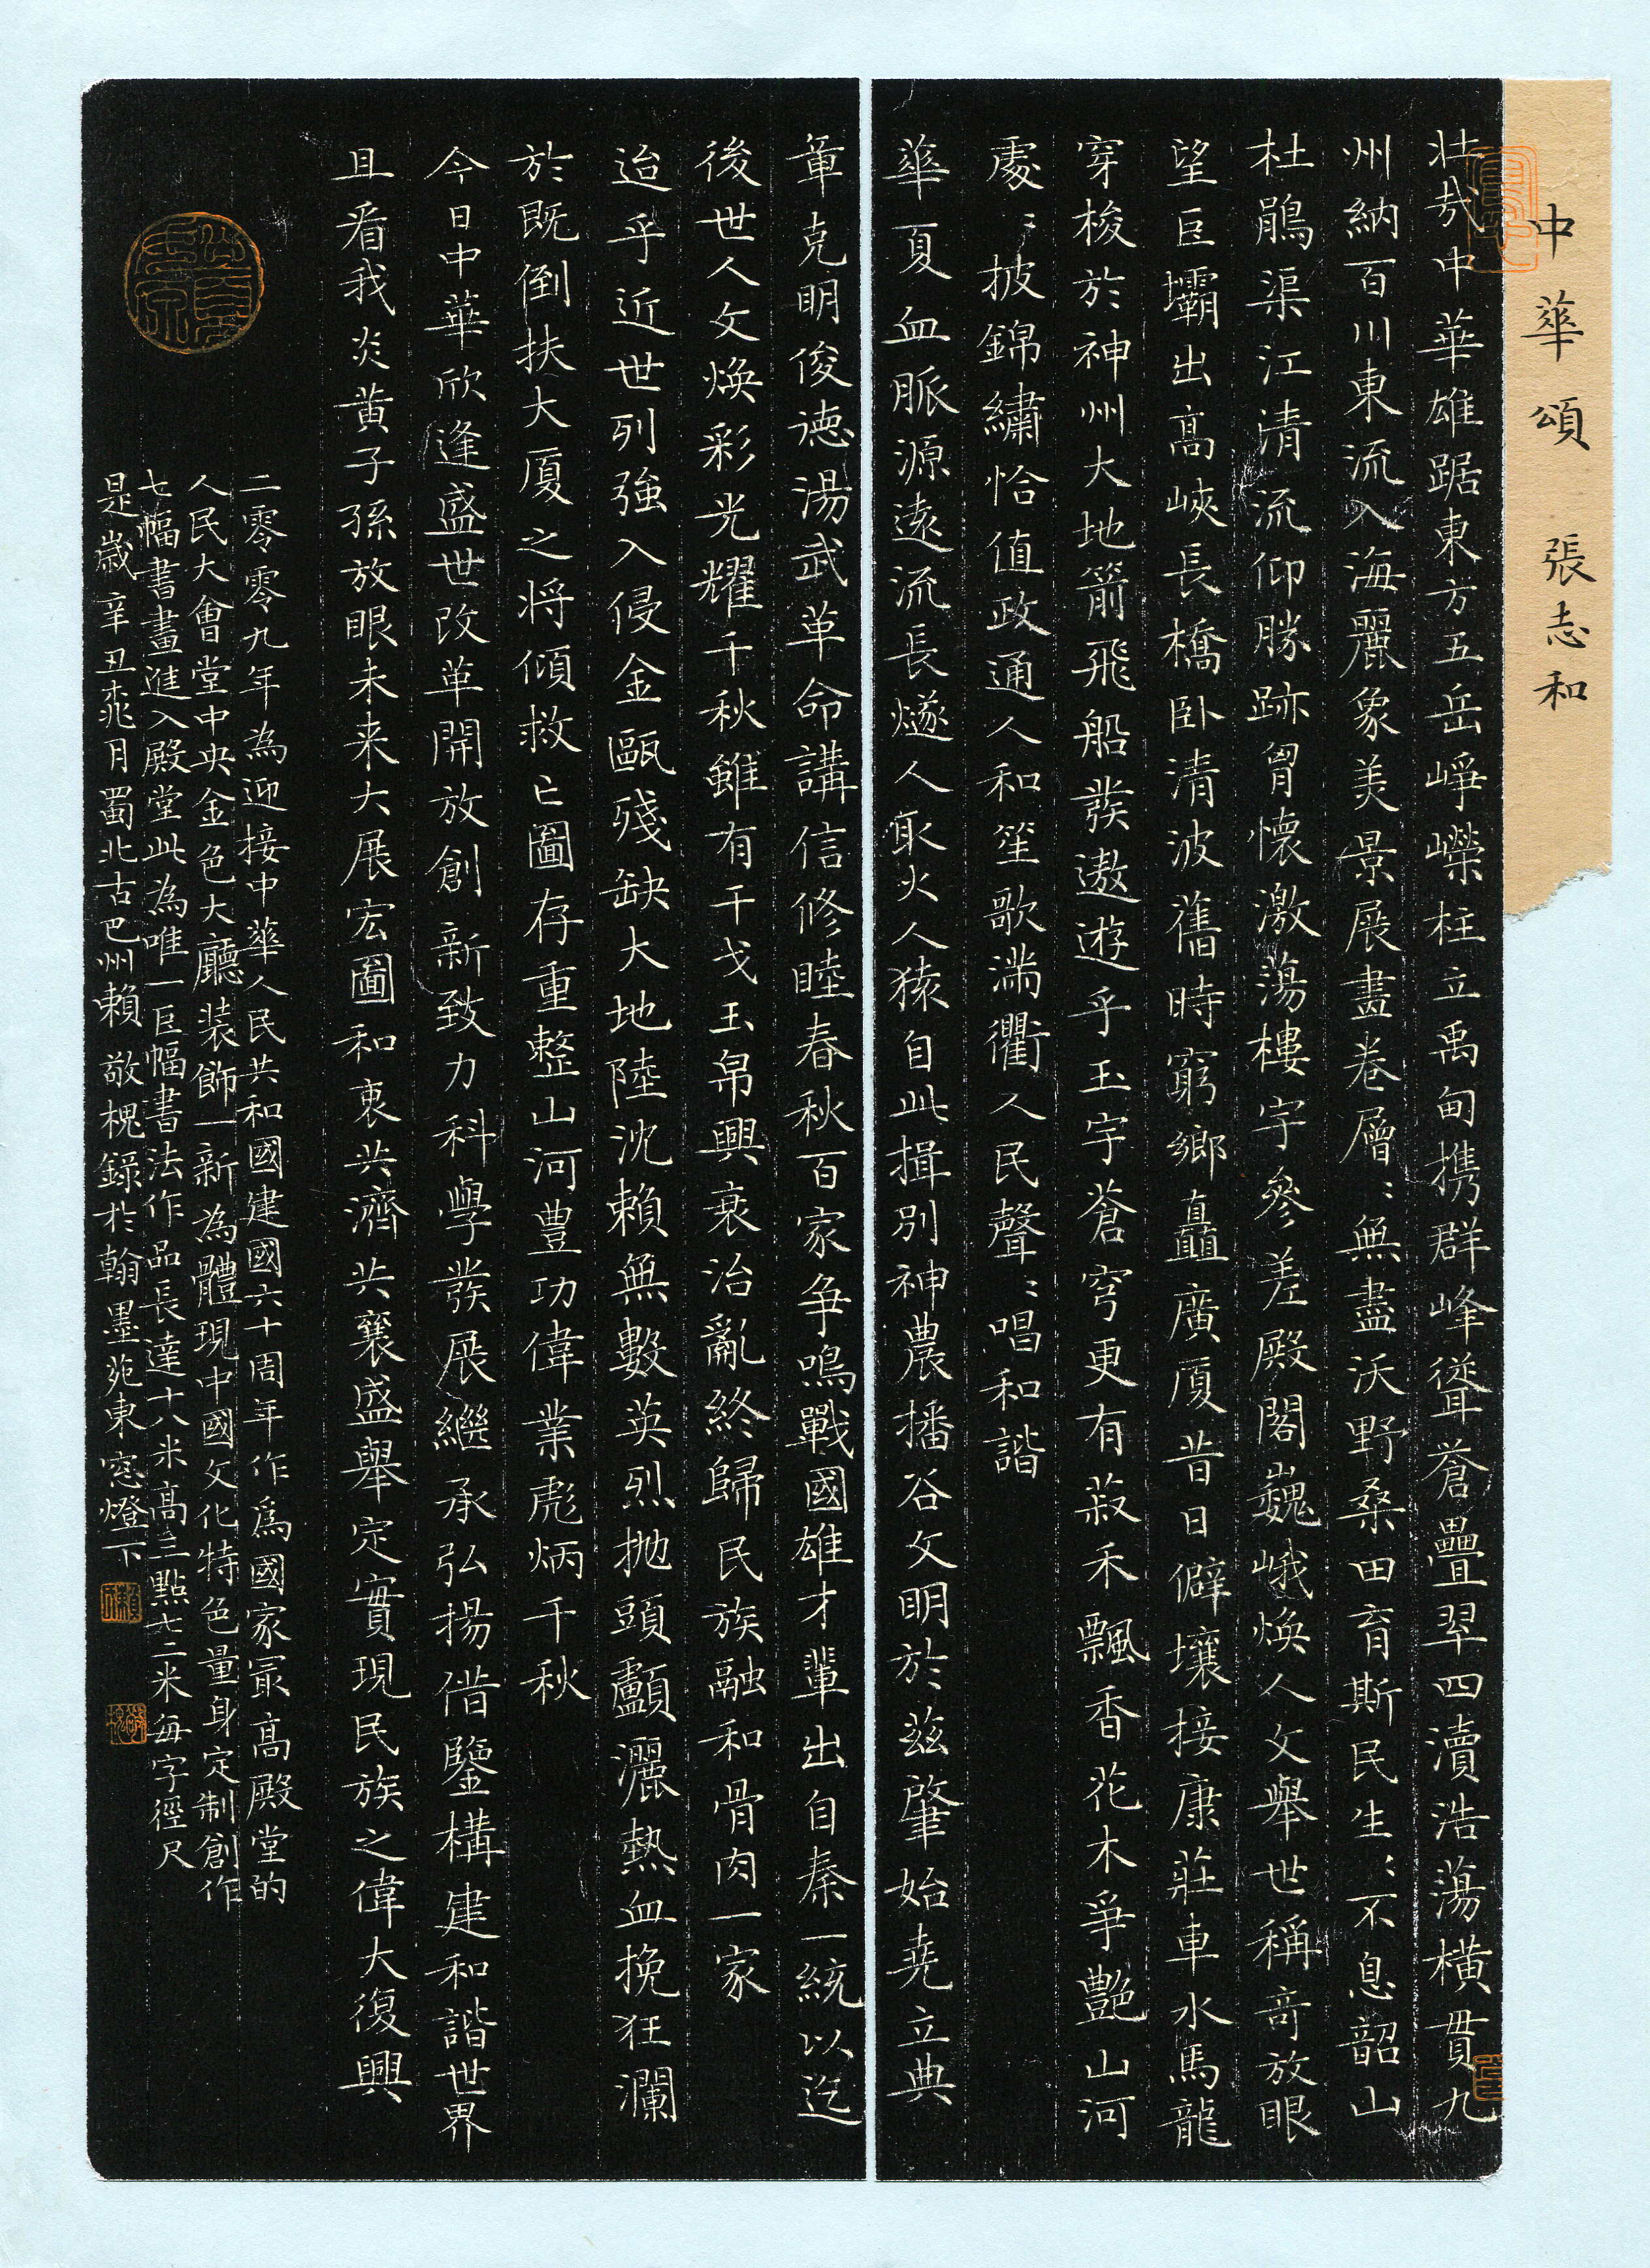 中華頌 張志和
壯哉中華雄踞東方五岳崢嶸柱立禹甸携群峰聳蒼疊翠四瀆浩蕩橫貫九
州納百川東流入海麗象美景展畫卷層〻無盡沃野桑田育斯民生〻不息韶山
杜鵑渠江清流仰勝跡胷懷激蕩樓宇參差殿閣巍峨煥人文舉世稱奇放眼
望巨壩出高峽長橋卧清波舊時窮鄉矗廣厦昔日僻壤接康莊車水馬龍
穿梭於神州大地箭飛船發遨遊乎玉宇蒼穹更有菽禾飄香花木爭艷山河
處〻披錦繡恰值政通人和笙歌滿衢人民聲〻唱和諧
華夏血脈源遠流長燧人取火人猿自此揖別神農播谷文明於兹肇始堯立典
章克明俊德湯武革命講信修睦春秋百家争鳴戰國雄才輩出自秦一統以迄
後世人文煥彩光耀千秋雖有干戈玉帛興衰治亂終歸民族融和骨肉一家
迨乎近世列強入侵金甌殘缺大地陸沈賴無數英烈抛頭顱灑熱血挽狂瀾
於既倒扶大厦之将傾救亡圖存重整山河豊功偉業彪炳千秋
今日中華欣逢盛世改革開放創新致力科學發展繼承弘揚借鑒構建和諧世界
且看我炎黄子孫放眼未来大展宏圖和衷共濟共襄盛舉定實現民族之偉大復興
二零零九年為迎接中華人民共和國建國六十周年作爲國家最高殿堂的
人民大會堂中央金色大廳裝飾一新為體現中國文化特色量身定制創作
七幅書畫進入殿堂此為唯一巨幅書法作品長達十八米高三點七二米每字徑尺
是歲辛丑桃月蜀北古巴州賴敬槐錄於翰墨苑東窓燈下